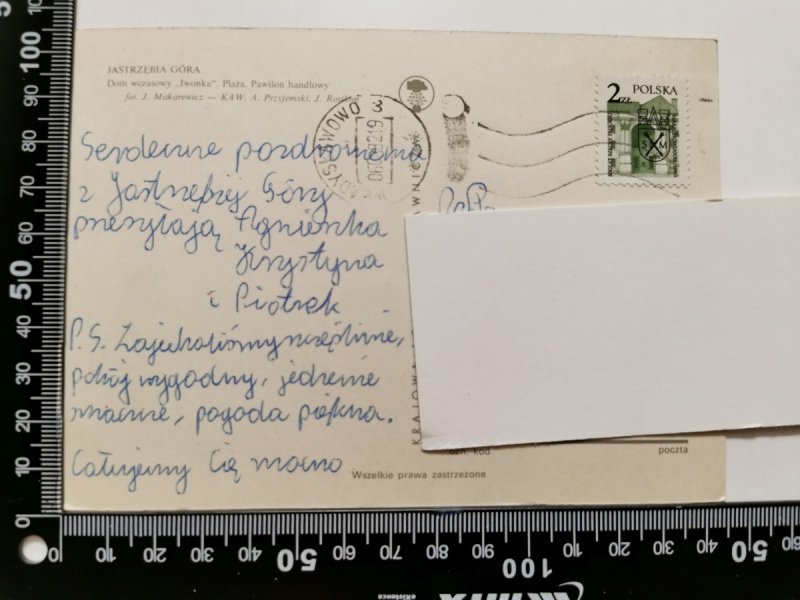 JASTRZĘBIA GÓRA
Dom wczasowy „Iwonka”. Plaża. Pawilon handlowy
fot. J. Makarewicz — KAW. A. Przyjemski, J. Rosikoń
WŁADYSŁAWOWO 3
2 ZŁ POLSKA
S M
Serdeczne pozdrowienia
z Jastrzębiej Góry
przesyłają Agnieszka
Krystyna
i Piotrek
P.S. Zajechaliśmy szczęśliwie,
pokój wygodny, jedzenie
smaczne, pogoda piękna.
Całujemy Cię mocno
KRAJOWA
poczta
Wszelkie prawa zastrzeżone
0 10 20 30 40 50 60 70 80 90 100
0 10 20 30 40 50 60 70 80 90 100
eXistence